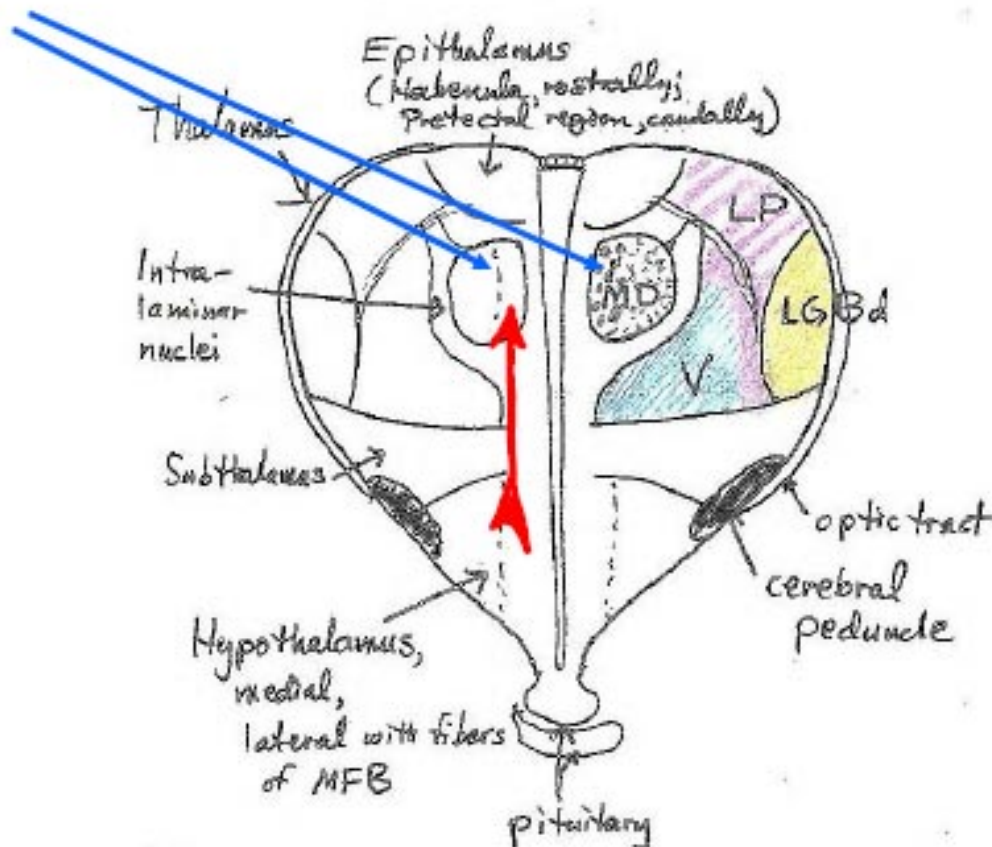 Epithalamus
(Habenula, rostrally;
Pretectal region, caudally)
Thalamus
LP
Intra-
laminar
nuclei
MD
LGBd
V
Subthalamus
optic tract
cerebral
peduncle
Hypothalamus,
medial,
lateral with fibers
of MFB
pituitary